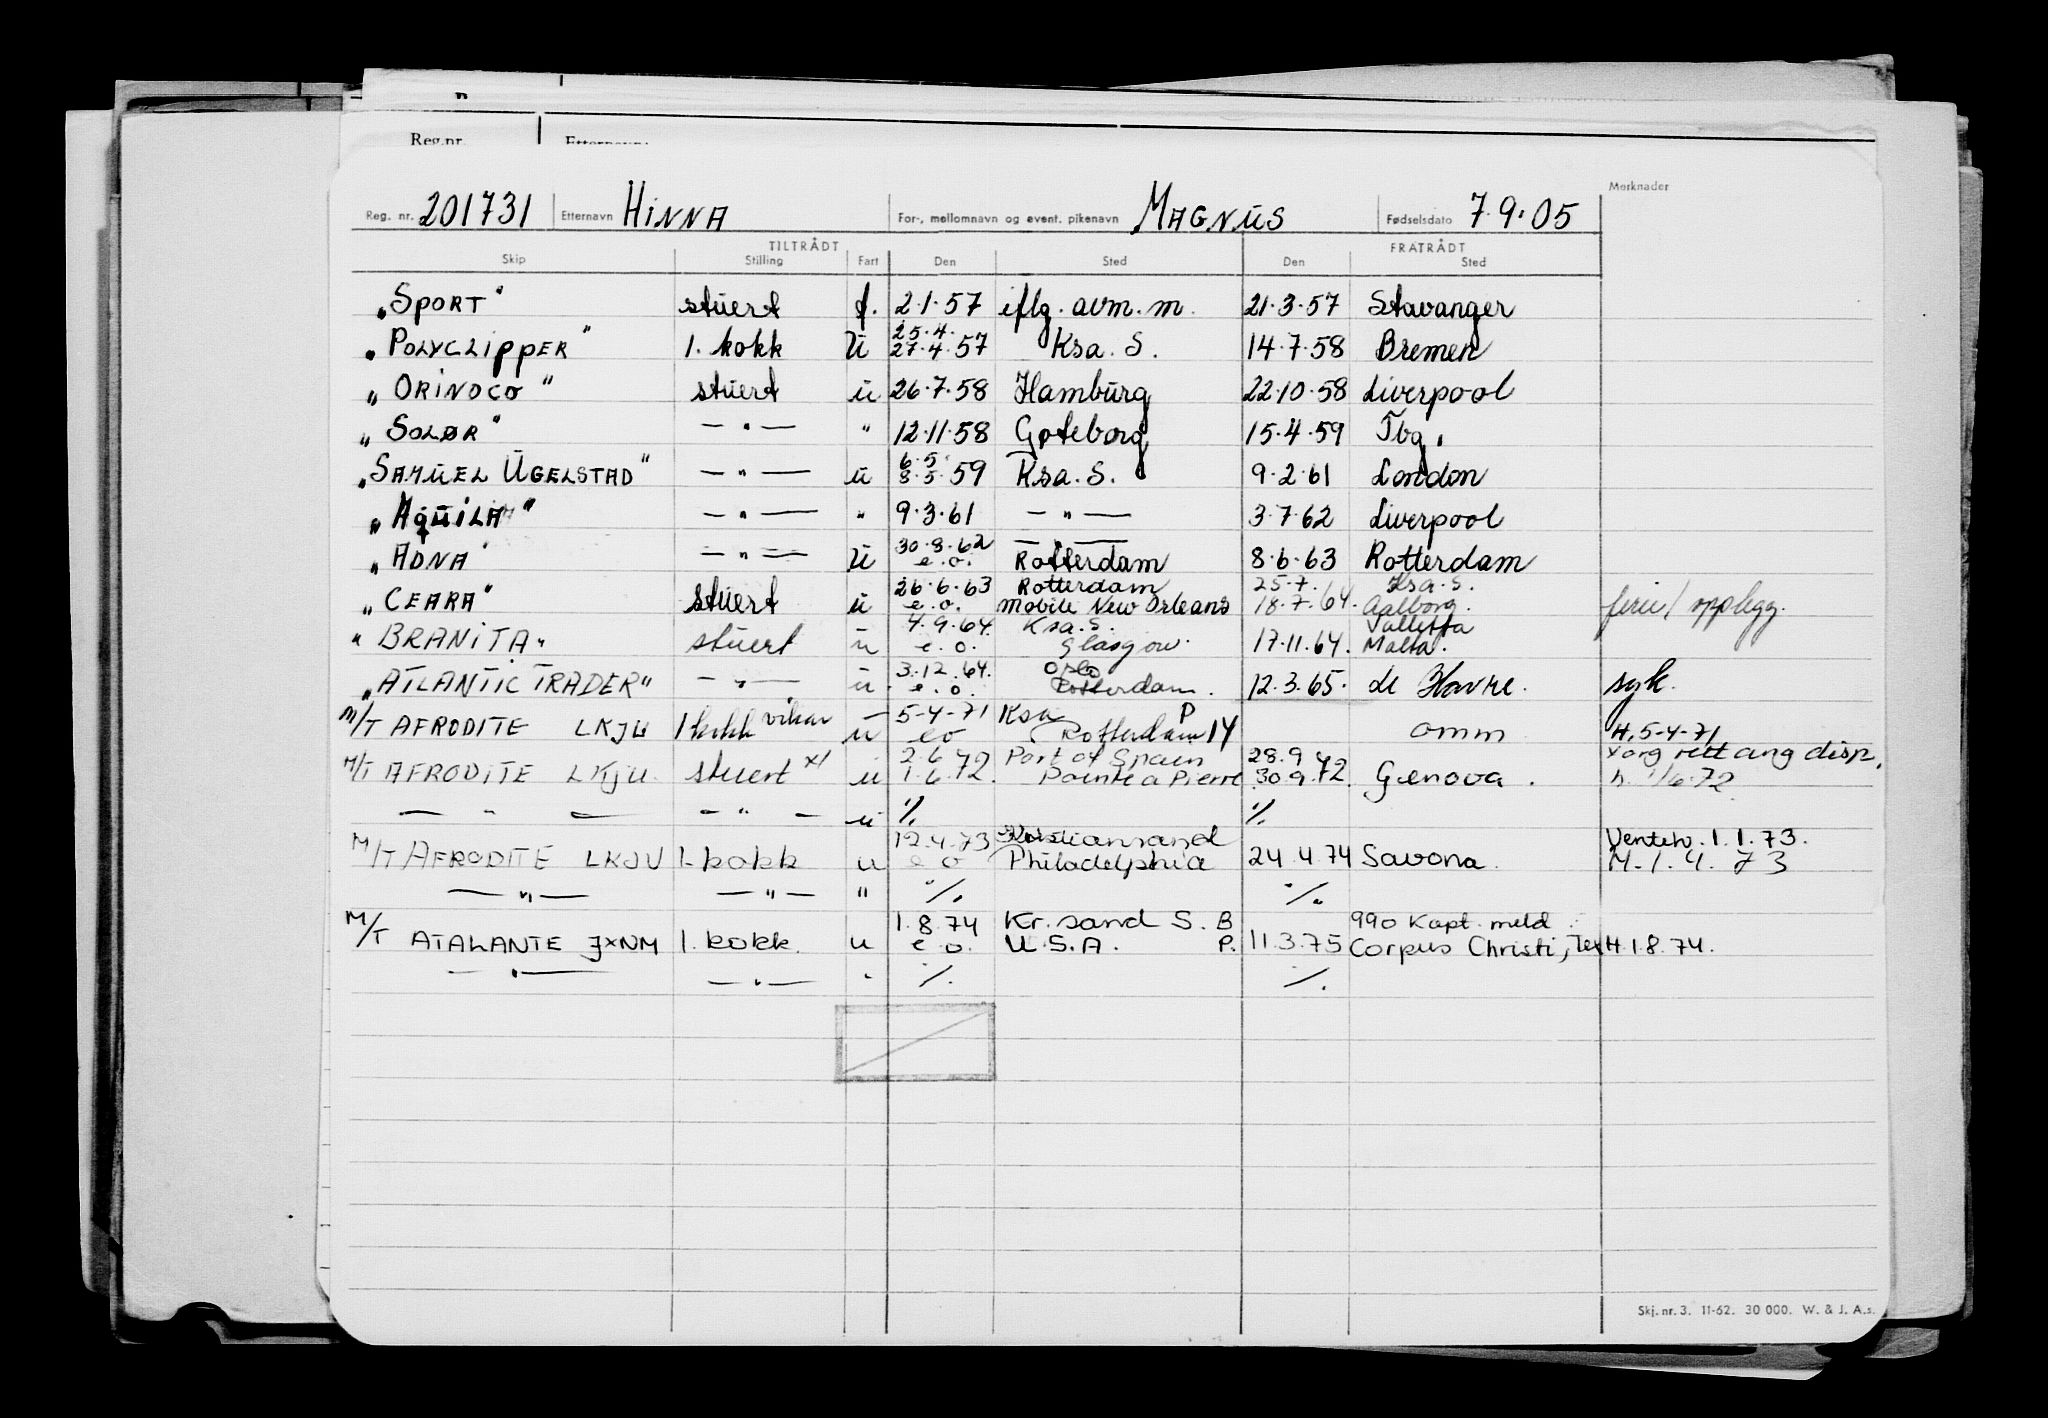 Reg.nr.
Merknader
Reg. nr. 201731 Etternavn HINNA For-, mellomnavn og event. pikenavn MAGNUS Fødselsdato 7.9.05
TILTRÅDT FRATRÅDT
Skip Stilling Fart Den Sted Den Sted
„SPORT" stuert f. 2.1.57 iflg. avm. m. 21.3.57 Stavanger
25.4.
„POLYCLIPPER" 1. kokk u 27.4.57 Ksa. S. 14.7.58 Bremen
„ORINOCO" stuert u 26.7.58 Hamburg 22.10.58 Liverpool
„SOLØR" — " — " 12.11.58 Gøteborg 15.4.59 Tbg.
6.5.
„SAMUEL UGELSTAD" — " — u 8.5.59 Ksa. S. 9.2.61 London
„AQUILA" — " — " 9.3.61 — " — 3.7.62 Liverpool
30.8.62 — " —
„ADNA" — " — u e.o. Rotterdam 8.6.63 Rotterdam
26.6.63 Rotterdam 25.7. Ksa. S.
„CEARA" stuert u e.o. Mobile New Orleans 18.7.64. Aalborg. ferie/opplegg.
4.9.64. Ksa. S. Valletta
„BRANITA" stuert u e.o. Glasgow. 17.11.64. Malta.
3.12.64. Oslo
„ATLANTIC TRADER" — " — u. e.o. Rotterdam. 12.3.65. le Havre. syk.
5-4-71 Ksa P
M/T AFRODITE LKJU 1 kokk vikar u eo Rotterdam 14 omm H.5-4-71
2.6 Port of Spain 28.9 x org rett ang disp.
M/T AFRODITE LKJU stuert x) u 1.6.72. Pointe a Pierre 30.9.72. Genova. h. 1/6.72
— " — — " — u % %
12.4.73 Kristiansand Venteh. 1.1.73.
M/T AFRODITE LKJU 1. kokk u e o Philadelphia 24.4.74 Savona. H.1.4.73
— " — — " — " % %
1.8.74 Kr. sand S. B 990 Kapt. meld
M/T ATALANTE JXNM 1. kokk. u e.o. U.S.A. P. 11.3.75 Corpus Christi, Tex H 1.8.74.
— " — — " — " % %
Skj. nr. 3. 11-62. 30 000. W. & J. A.s.